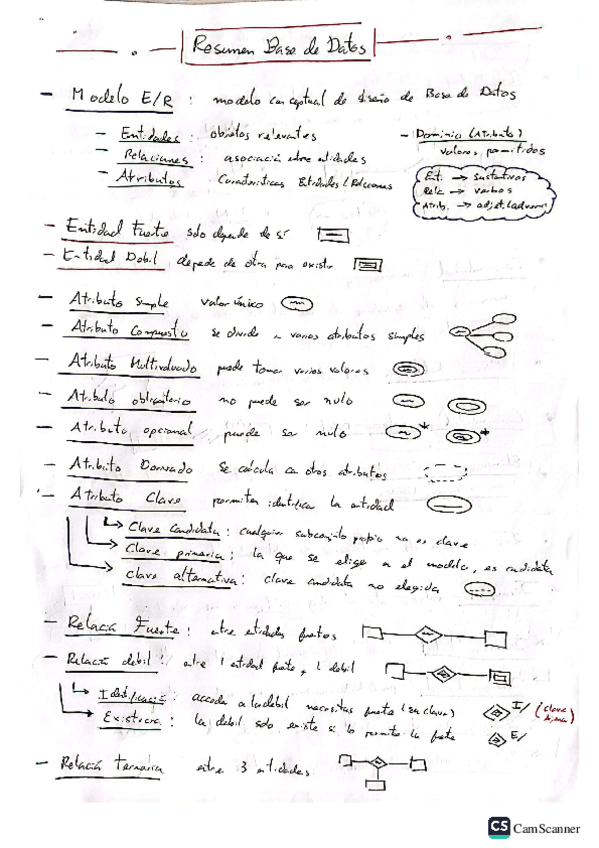 Resumen Base de Datos
- Modelo E/R : modelo conceptual de diseño de Base de Datos
- Entidades : objetos relevantes
- Relaciones : asociación entre entidades
- Atributos Características Entidades/Relaciones
- Dominio (Atributo)
valores permitidos
Ent. → sustantivos
Rela → verbos
Atrib. → adjet./adverbios
- Entidad Fuerte solo depende de sí
- Entidad Débil depende de otra para existir
- Atributo Simple valor único
- Atributo Compuesto se divide en varios atributos simples
- Atributo Multivaluado puede tomar varios valores
- Atributo obligatorio no puede ser nulo
- Atributo opcional puede ser nulo
- Atributo Derivado Se calcula con otros atributos
- Atributo Clave permiten identificar la entidad
Clave Candidata : cualquier subconjunto propio no es clave
Clave primaria : la que se elige en el modelo, es candidata
Clave alternativa : clave candidata no elegida
- Relación Fuerte : entre entidades fuertes
- Relación débil : entre 1 entidad fuerte y 1 débil
Identificación : acceder a la debil necesitas fuerte (su clave) I/ (clave Ajena)
Existencia : la debil solo existe si lo permite la fuerte E/
- Relación ternaria entre 3 entidades
CS CamScanner